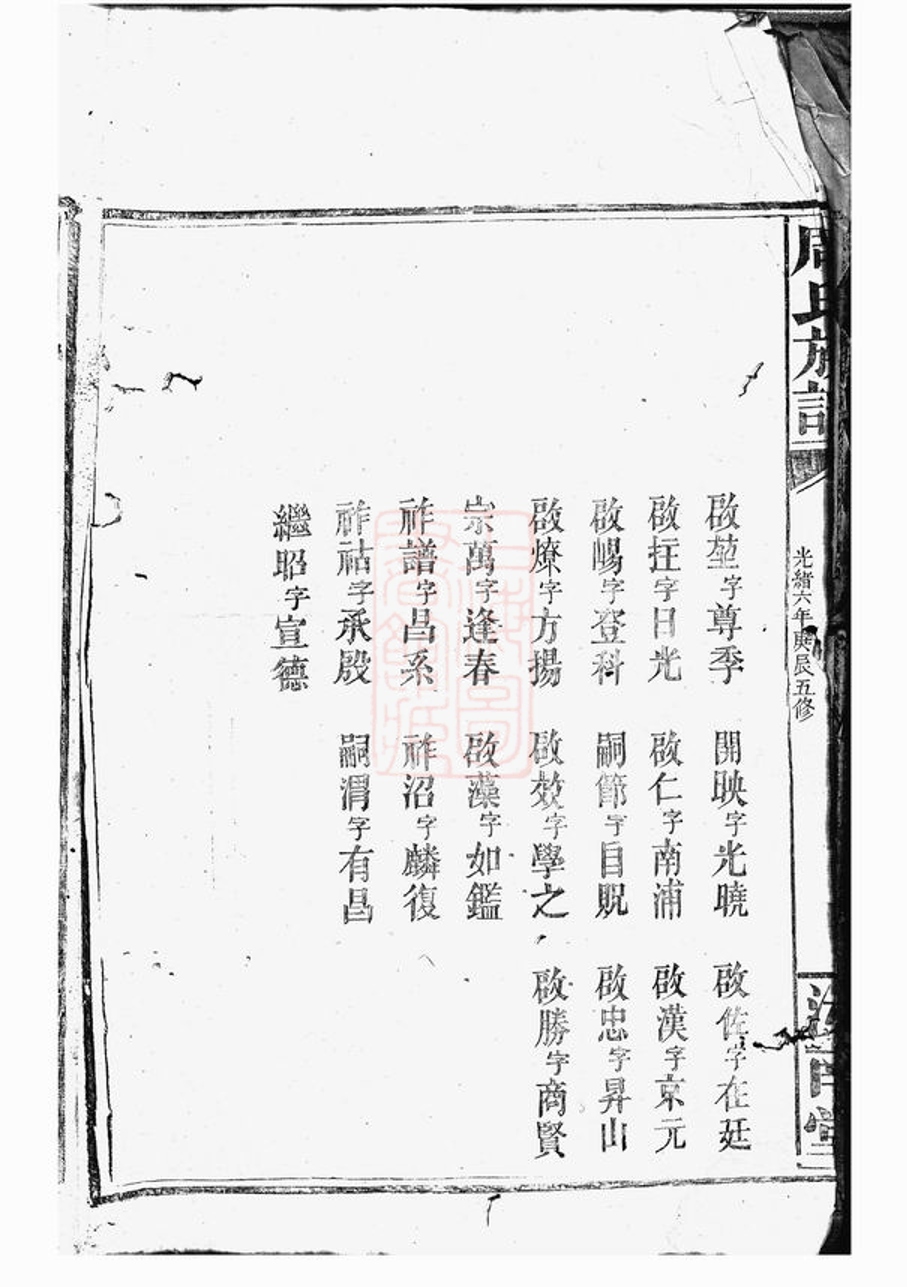 周氏族譜
光緒六年庚辰五修
堂
啟堃字尊季　開映字光曉　啟佐字在廷
啟抂字日光　啟仁字南浦　啟漢字京元
啟崵字登科　嗣節字自贶　啟忠字昇山
啟燎字方揚　啟效字學之　啟勝字商賢
宗萬字逢春　啟藻字如鑑
祚譜字昌系　祚沼字麟復
祚祜字承殷　嗣渭字有昌
繼昭字宣德